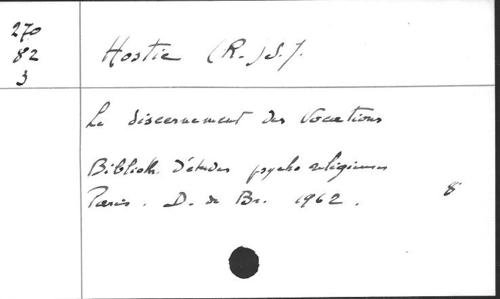 270
82
3
Hostie (R.) S.J.
Le discernement des Vocations
Biblioth. d'études psycho religieuses
Paris. D. de Br. 1962.
8